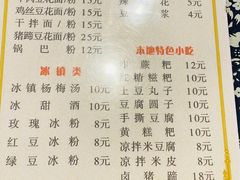 鸡丝豆花面/粉 15元
干拌面/粉 15元
猪蹄豆花面/粉 25元
锅巴粉 12元
冰镇类
冰镇杨梅汤 10元
冰甜酒 10元
玫瑰冰粉 8元
红豆冰粉 8元
绿豆冰粉 8元
豆浆 2元
本地特色小吃
牛蕨粑 12元
糍粑 10元
土豆丸子 10元
豆腐圆子 10元
手撕豆腐 10元
黄糕粑 10元
凉拌米豆腐 8元
凉拌米皮 8元
卤猪蹄 18元